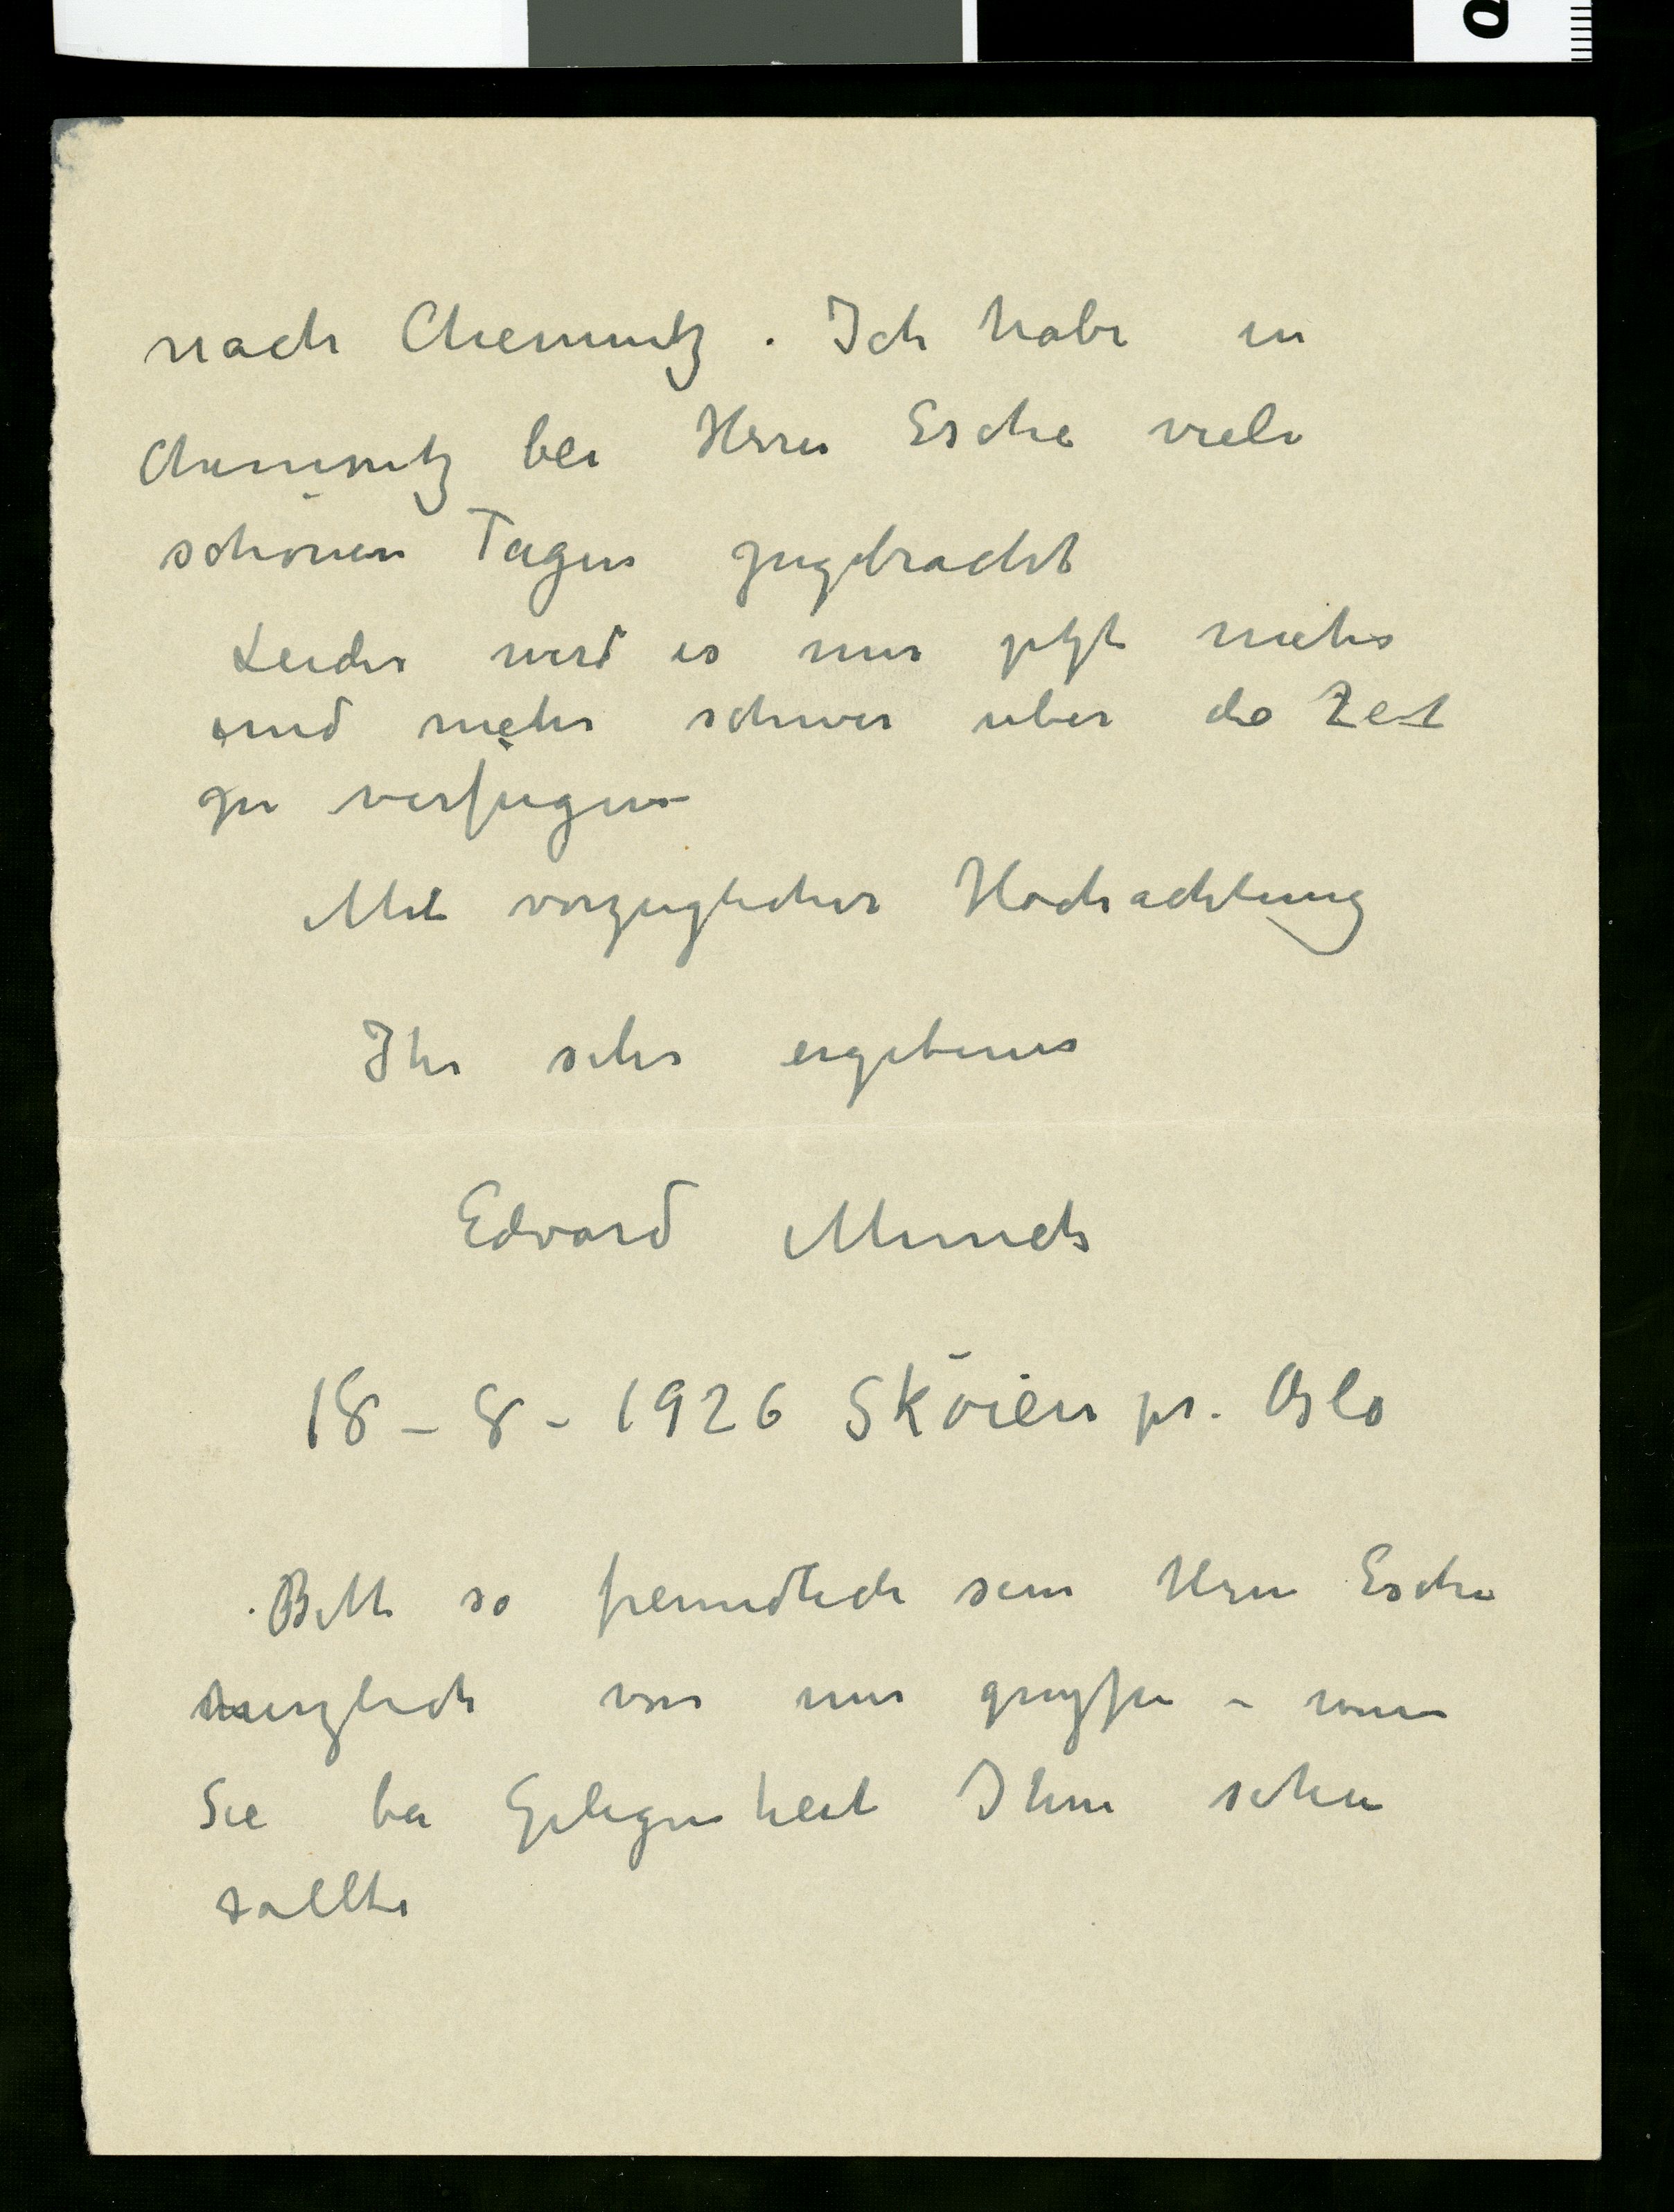 nach Chemnitz. Ich habe in
Chemnitz bei Herrn Esche viele
schönen Tagen zugebracht
Leider wird es mir jetzt mehr
und mehr schwer über die Zeit
zu verfugen
Mit vorzuglicher Hochachtung
Ihr sehr ergebener
Edvard Munch
18 – 8 – 1926 Sköien pr. Oslo
Bitte so freundlich sein Herrn Esche
herzlich von mir gruszen – wenn
Sie bei Gelegenheit Ihm sehen
sollte